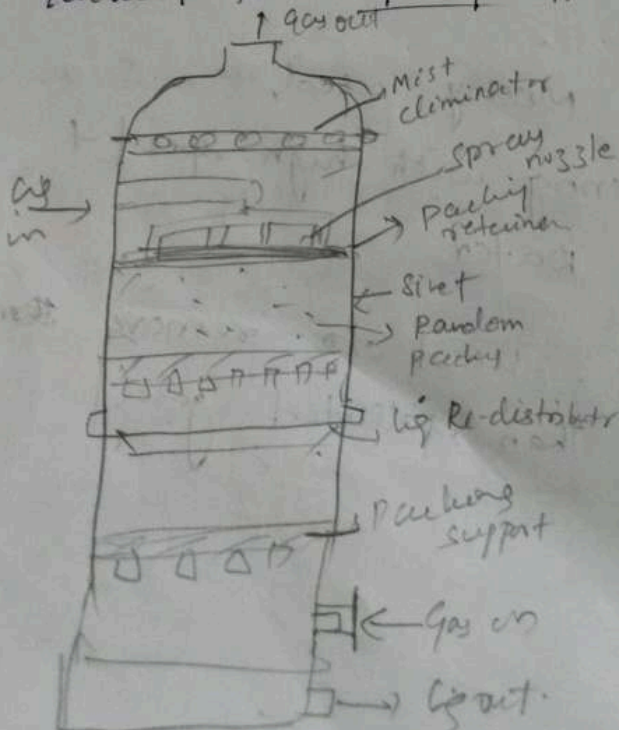 gas out
Mist
eliminator
Spray
nozzle
liq
in
packing
retainer
Random
packing
liq Re-distributor
Packing
support
Gas in
liq out.